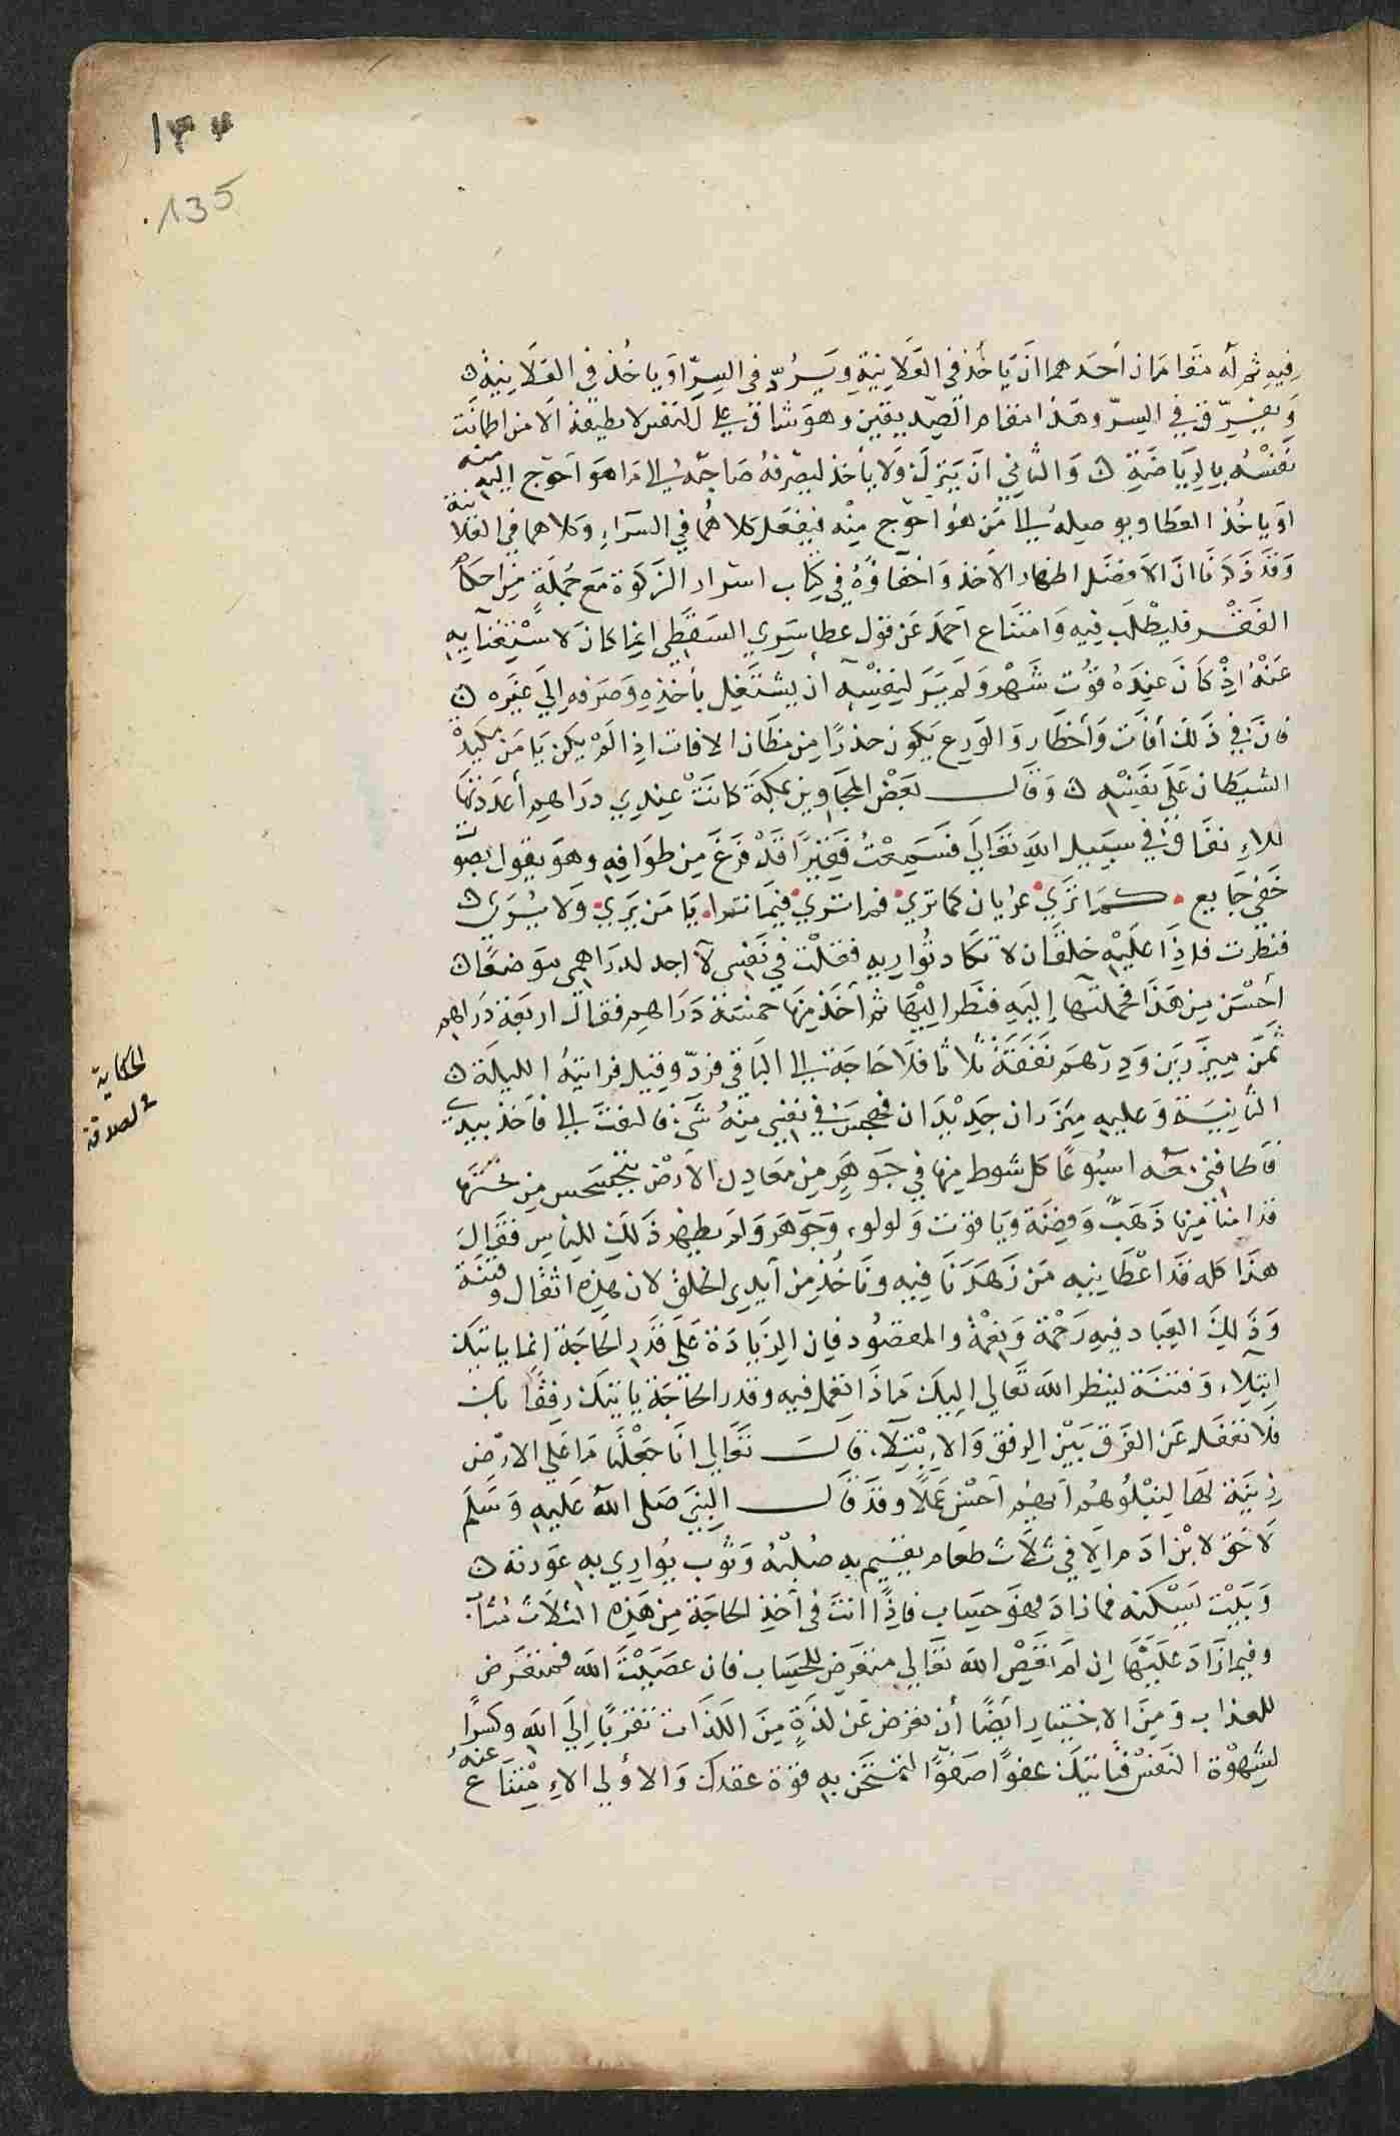 ١٣٤
135
فيه ثم له مقامان احدهما ان ياخذ في العلانية ويرد في السر او ياخذ في العلانية
ويفرق في السر وهذا مقام الصديقين وهو شاق على النفس لا يطيقه الا من اطمانت
نفسه بالرياضة والثاني ان يترك ولا ياخذ ليصرفه صاحبه الى من هو احوج اليه منه
او ياخذ العطا ويوصله الى من هو احوج منه فيفعل كلاهما في السر او كلاهما في العلانية
وقد ذكرنا ان الافضل اظهار الاخذ واخفاؤه في كتاب اسرار الزكوة مع جملة من احكام
الفقر فليطلب فيه وامتناع احمد عن قول عطا سري السقطي انما كان لاستغنايه
عنه اذ كان عنده قوت شهر ولم ير لنفسه ان يشتغل باخذه وصرفه الى غيره
فان في ذلك افات واخطار والورع يكون حذرا من مظان الافات اذا لم يكن يامن مكيدة
الشيطان على نفسه وقال بعض المجاورين بمكة كانت عندي دراهم اعددتها
للانفاق في سبيل الله تعالى فسمعت فقيرا قد فرغ من طوافه وهو يقول بصوت
خفي جايع كما ترى عريان كما ترى فما ترى فيما ترى يا من يرى ولا يرى
فنظرت فاذا عليه خلقان لا تكاد تواريه فقلت في نفسي لا اجد لدراهمي موضعا
احسن من هذا فحملتها اليه فنظر اليها ثم اخذ منها خمسة دراهم فقال اربعة دراهم
ثمن ميزرين ودرهم نفقة ثلاثا فلا حاجة لي الى الباقي فرده وقيل فرايته الليلة
الثانية وعليه ميزران جديدان فهجس في نفسي منه شي فالتفت الي فاخذ بيدي
فاطافني معه اسبوعا كل شوط منها في جوهر من معادن الارض يتخشخش من تحتها
قدامنا منها ذهب وفضة وياقوت ولولو وجوهر ولم يظهر ذلك للناس فقال
هذا كله قد اعطانيه من زهدنا فيه وناخذ من ايدي الخلق لان هذه اثقال وفتنة
وذلك العباد فيه رحمة ونعمة والمقصود فان الزيادة على قدر الحاجة انما ياتيك
ابتلاء وفتنة لينظر الله تعالى اليك ماذا تعمل فيه وقدر الحاجة ياتيك رفقا بك
فلا تغفل عن الفرق بين الرفق والابتلاء قال تعالى انا جعلنا ما على الارض
زينة لها لنبلوهم ايهم احسن عملا وقد قال النبي صلى الله عليه وسلم
لا حق لابن ادم الا في ثلاث طعام يقيم به صلبه وثوب يواري به عورته
وبيت يسكنه فما زاد فهو حساب فاذا انت في اخذ الحاجة من هذه الثلاث مثاب
وفيما زاد عليها ان لم تعص الله تعالى متعرض للحساب فان عصيت الله فمتعرض
للعذاب ومن الاختيار ايضا ان تعرض عن لذة من اللذات تقربا الى الله وكسرا
لشهوة النفس فتاتيك عفوا صفوا لتمتحن به قوة عقدك والاولى الامتناع عنه
الحكاية
في الصدقة